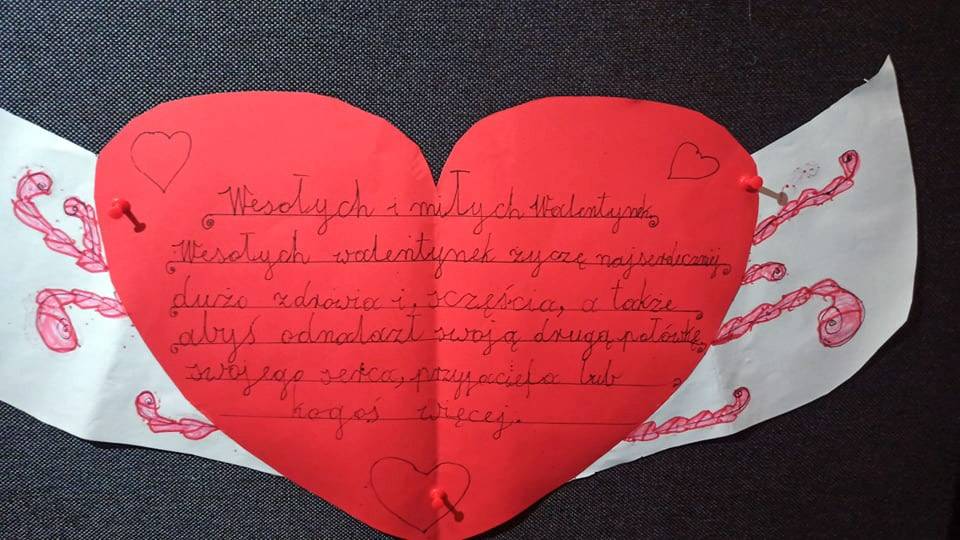 Wesołych i miłych Walentynek
Wesołych walentynek życzę najserdeczniej
dużo zdrowia i szczęścia, a także
abyś odnalazł swoją drugą połówkę
swojego serca, przyjaciela lub
kogoś więcej.